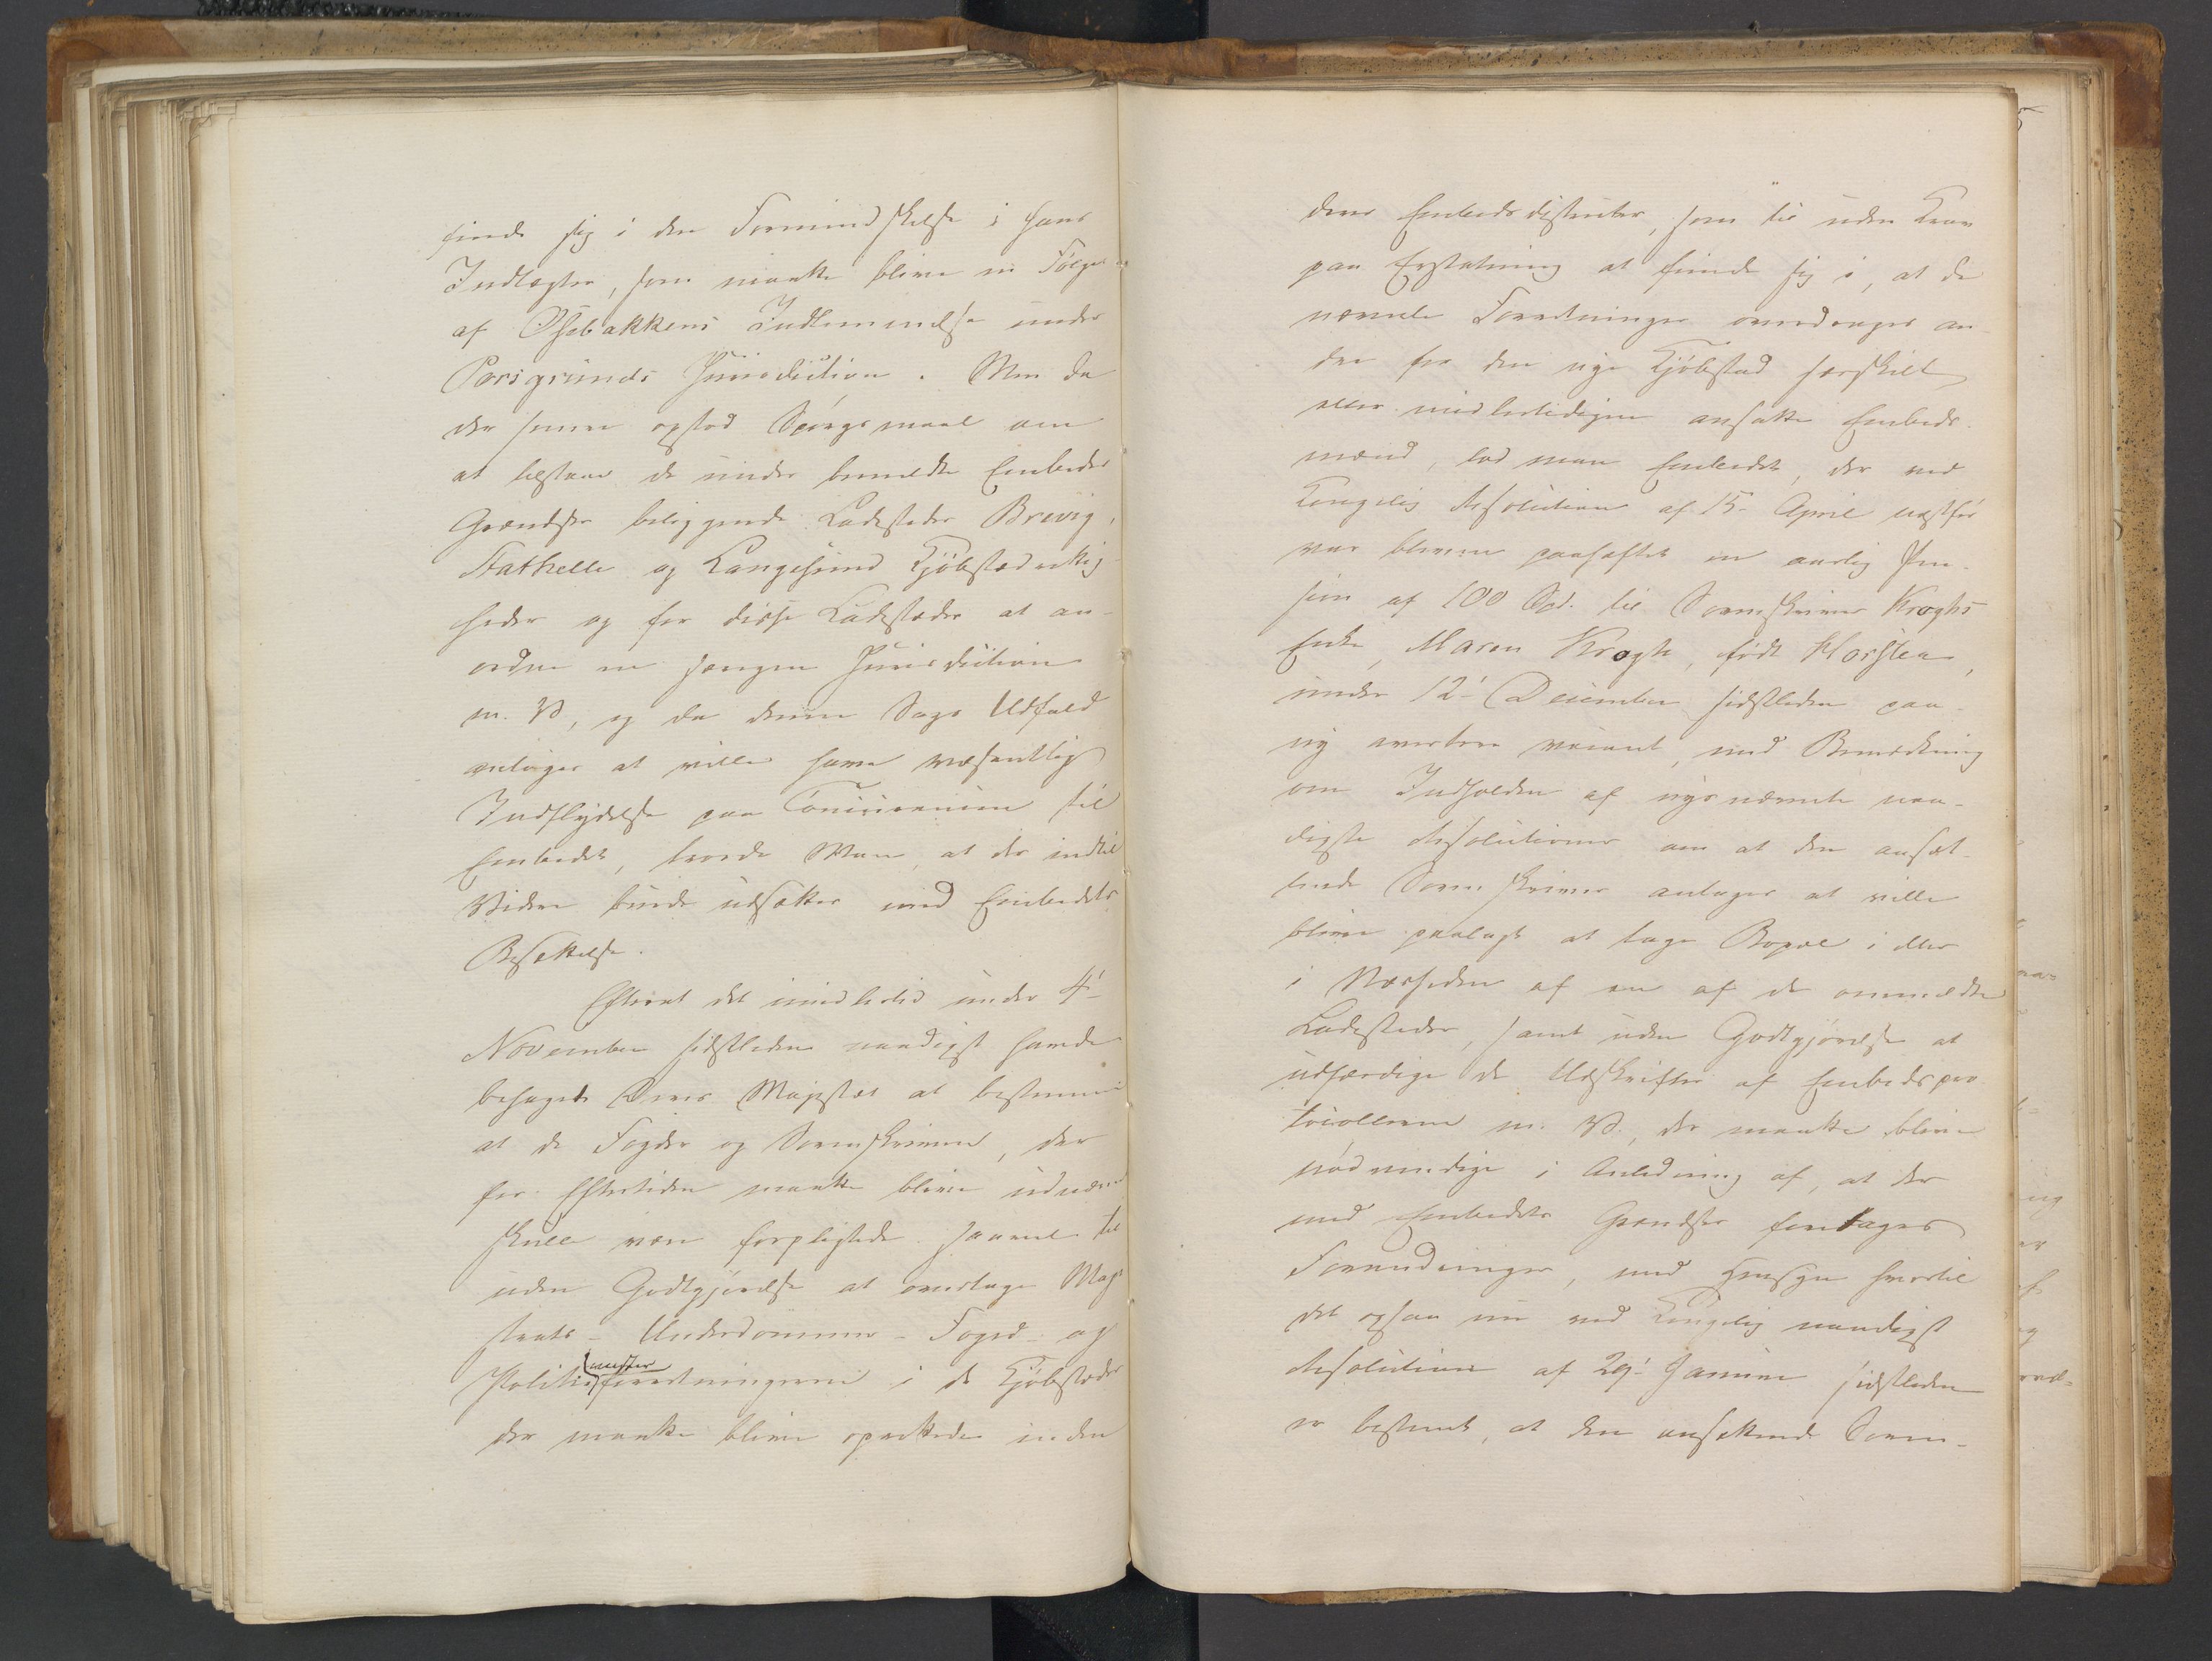 finde sig i den Formindskelse i hans
Indtægter, som maatte blive en Følge
af Osebakkens Indlemmelse under
Porsgrunds Jurisdiction. Men da
der senere opstod Spørgsmaal om
at tilstaae de under bemeldte Embedes
Grændser beliggende Ladesteder Brevig,
Stathelle og Langesund Kjøbstadrettig-
heder og for disse Ladesteder at an-
ordne en særegen Jurisdiction
m. V., og da denne Sags Udfald
antages at ville have væsentlig
Indflydelse paa Concurrencen til
Embedet, troede Man, at der indtil
Videre burde udsættes med Embedets
Besættelse.
Efterat det imidlertid under 4de
November sidstleden naadigst havde
behaget Deres Majestæt at bestemme
at de Fogder og Sorenskrivere, der
for Eftertiden maatte blive udnævnte
skulle være forpligtede saavel til
uden Godtgjørelse at overtage Magi-
strats- Underdommer- Foged- og
Politimesterforretningerne i de Kjøbstæder
der maatte blive oprettede inden
deres Embedsdistricter, som til uden Krav
paa Erstatning at finde sig i, at de
nævnte Forretninger overdrages an-
dre for den nye Kjøbstad særskilt
eller midlertidigen ansatte Embeds-
mænd, lod man Embedet, der ved
Kongelig Resolution af 15de April næstfør
var bleven paaheftet en aarlig Pen-
sion af 100 Spd. til Sorenskriver Kroghs
Enke, Maren Krogh, født Horsten,
under 12te December sidstleden paa-
ny avertere vacant, med Bemærkning
om Indholden af nysnævnte naa-
digste Resolutioner om at den ansæt-
tende Sorenskriver antages at ville
blive paalagt at tage Bopæl i eller
i Nærheden af en af de ommeldte
Ladesteder, samt uden Godtgjørelse at
udfærdige de Udskrifter af Embedspro-
tocollerne m. V., der maatte blive
nødvendige i Anledning af, at der
med Embedets Grændser foretages
Forandringer, med Hensyn hvortil
det ogsaa nu ved Kongelig naadigst
Resolution af 29de Januar sidstleden
er bestemt, at den ansættende Soren-